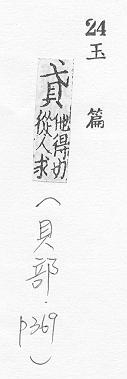 24
玉篇
貣
他得切
從人求
(貝部.p369)